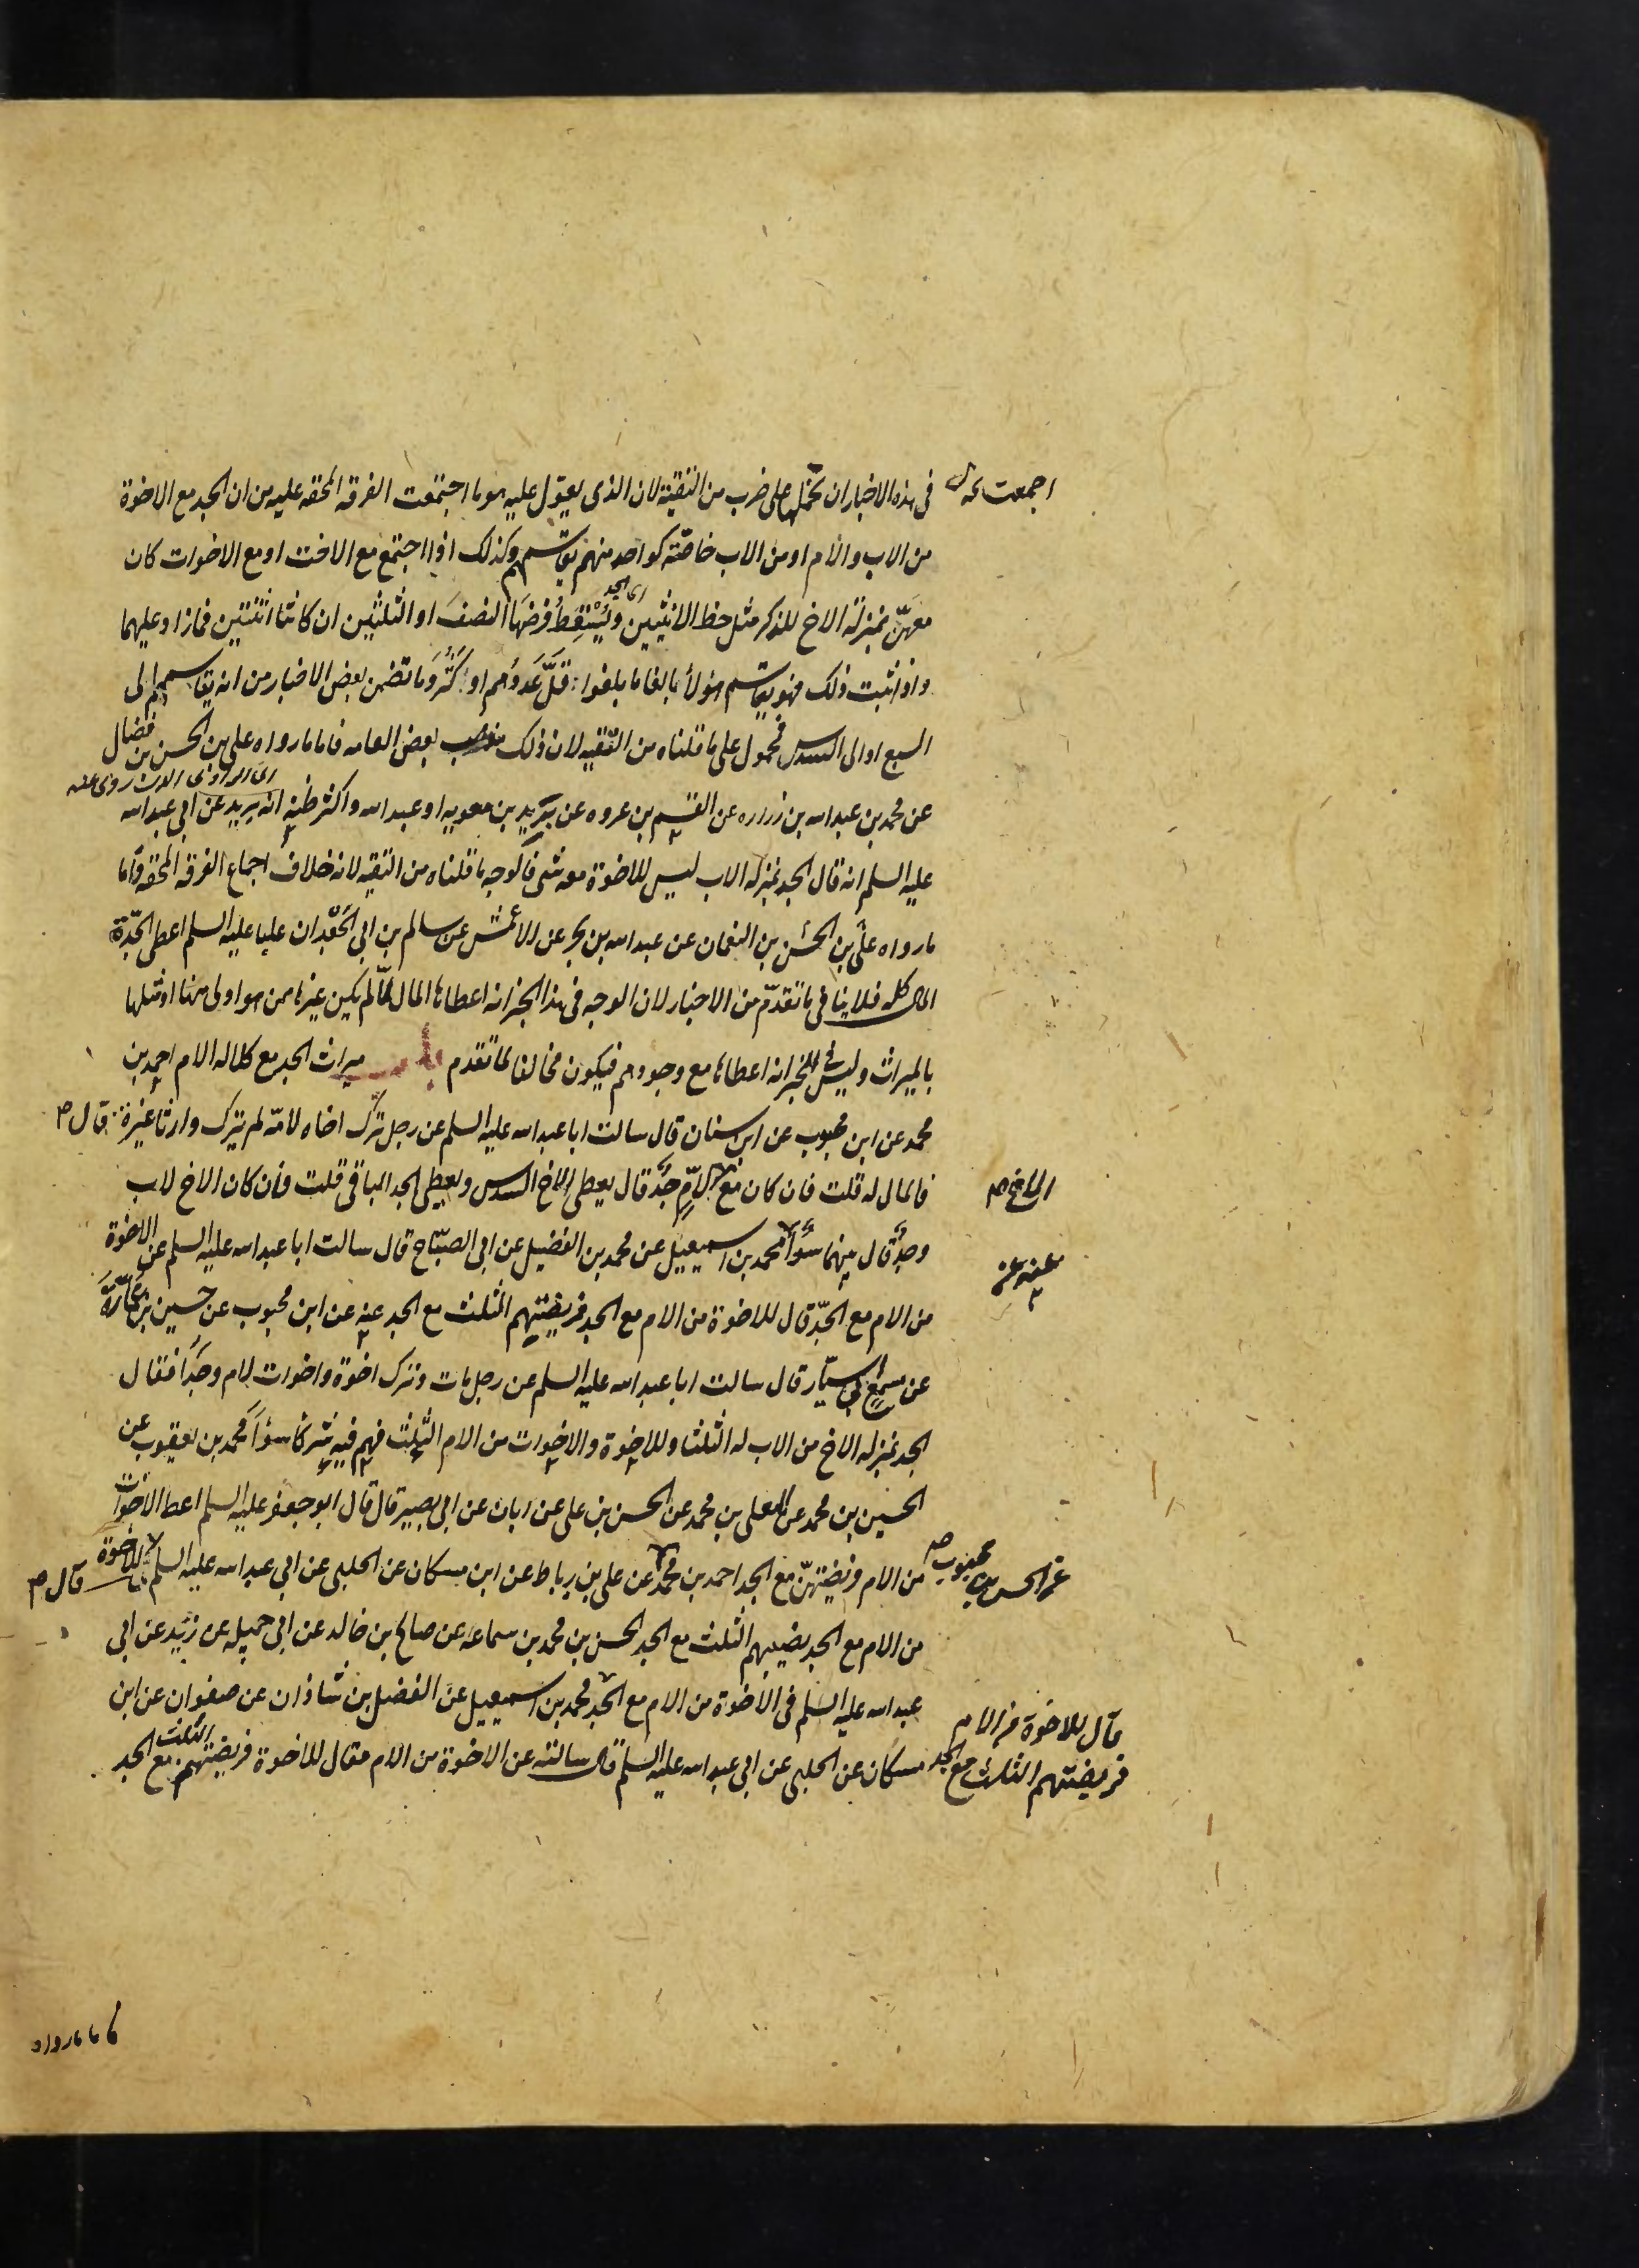 فى هذه الاخبار ان نحملها على ضرب من التقية لان الذى يعول عليه هو ما اجتمعت الفرقه المحقه عليه من ان الجد مع الاخوة
اجمعت خه ل
من الاب والام او من الاب خاصّة كواحد منهم يقاسمهم وكذلك اذا اجتمع مع الاخت او مع الاخوات كان
اى الجد
معهنّ بمنزلة الاخ للذكر مثل حظ الانثيين ويَسْقُطُ فرضها النصفَ او الثلثين ان كانتا اثنتين فما زاد عليهما
واذا ثبت ذلك فهو يقاسم هؤلاء بالغا ما بلغوا قلّ عددهم او كثر وما تضمن بعض الاخبار من انه يقاسمهم الى
السبع او الى السدس فمحمول على ما قلناه من التقيه لان ذلك مذهب بعض العامه فاما ما رواه على بن الحسن بن فضال
اى الراوى الذى روى عنه
عن محمد بن عبد الله بن زراره عن القسم بن عروه عن بريد بن معويه او عبد الله واكثر ظنى انه بريد عن ابى عبد الله
عليه السلم انه قال الجد بمنزله الاب ليس للاخوة معه شى فالوجه ما قلناه من التقيه لانه خلاف اجماع الفرقه المحقه واما
ما رواه على بن الحسن بن النعمان عن عبد الله بن بحر عن الاعمش عن سالم بن ابى الجعد ان عليا عليه السلم اعطى الجدّة
المال كله فلا ينافى ما تقدّم من الاخبار لان الوجه فى هذا الخبر انه اعطاها المال لمّا لم يكن غيرها ممن هو اولى منها او مثلها
بالميراث وليس فى الخبر انه اعطاها مع وجودهم فيكون مخالفا لما تقدم باب ميراث الجد مع كلاله الام احمد بن
محمد عن ابن محبوب عن ابن سنان قال سالت ابا عبد الله عليه السلم عن رجل ترك اخاه لامّه لم يترك وارثا غيره قال ص
فالمال له قلت فان كان مع الامّ جدّ قال يعطى الاخ السدس ويعطى الجد الباقى قلت فان كان الاخ لاب
الاخ ص
وجدّ قال بينهما سواء محمد بن اسمعيل عن محمد بن الفضيل عن ابى الصبّاح قال سالت ابا عبد الله عليه السلم عن الاخوة
عنه عن
من الام مع الجدّ قال للاخوة من الام مع الجد فريضتهم الثلث مع الجد عنه عن ابن محبوب عن حسين بن عمارة
عن مسمع ابى سيّار قال سالت ابا عبد الله عليه السلم عن رجل مات وترك اخوة واخوات لام وجدّا فقال
الجد بمنزله الاخ من الاب له الثلثا وللاخوة والاخوات من الام الثلث فهم فيه شركا سواء محمد بن يعقوب عن
الحسين بن محمد عن المعلى بن محمد عن الحسن بن على عن ابان عن ابى بصير قال قال ابو جعفر عليه السلم اعط الاخوات
من الام فريضتهنّ مع الجد احمد بن محمد عن على بن رباط عن ابن مسكان عن الحلبى عن ابى عبد الله عليه السلم للاخوة
عن الحسن بن محبوب ص
قال ص
من الام مع الجد نصيبهم الثلث مع الجد الحسن بن محمد بن سماعه عن صالح بن خالد عن ابى جميله عن زيد عن ابى
عبد الله عليه السلم فى الاخوة من الام مع الجد محمد بن اسمعيل عن الفضل بن شاذان عن صفوان عن ابن
قال للاخوة من الام
فريضتهم الثلث مع الجد
مسكان عن الحلبى عن ابى عبد الله عليه السلم قال سالته عن الاخوة من الام فقال للاخوة فريضتهم الثلث مع الجد
فاما ما رواه